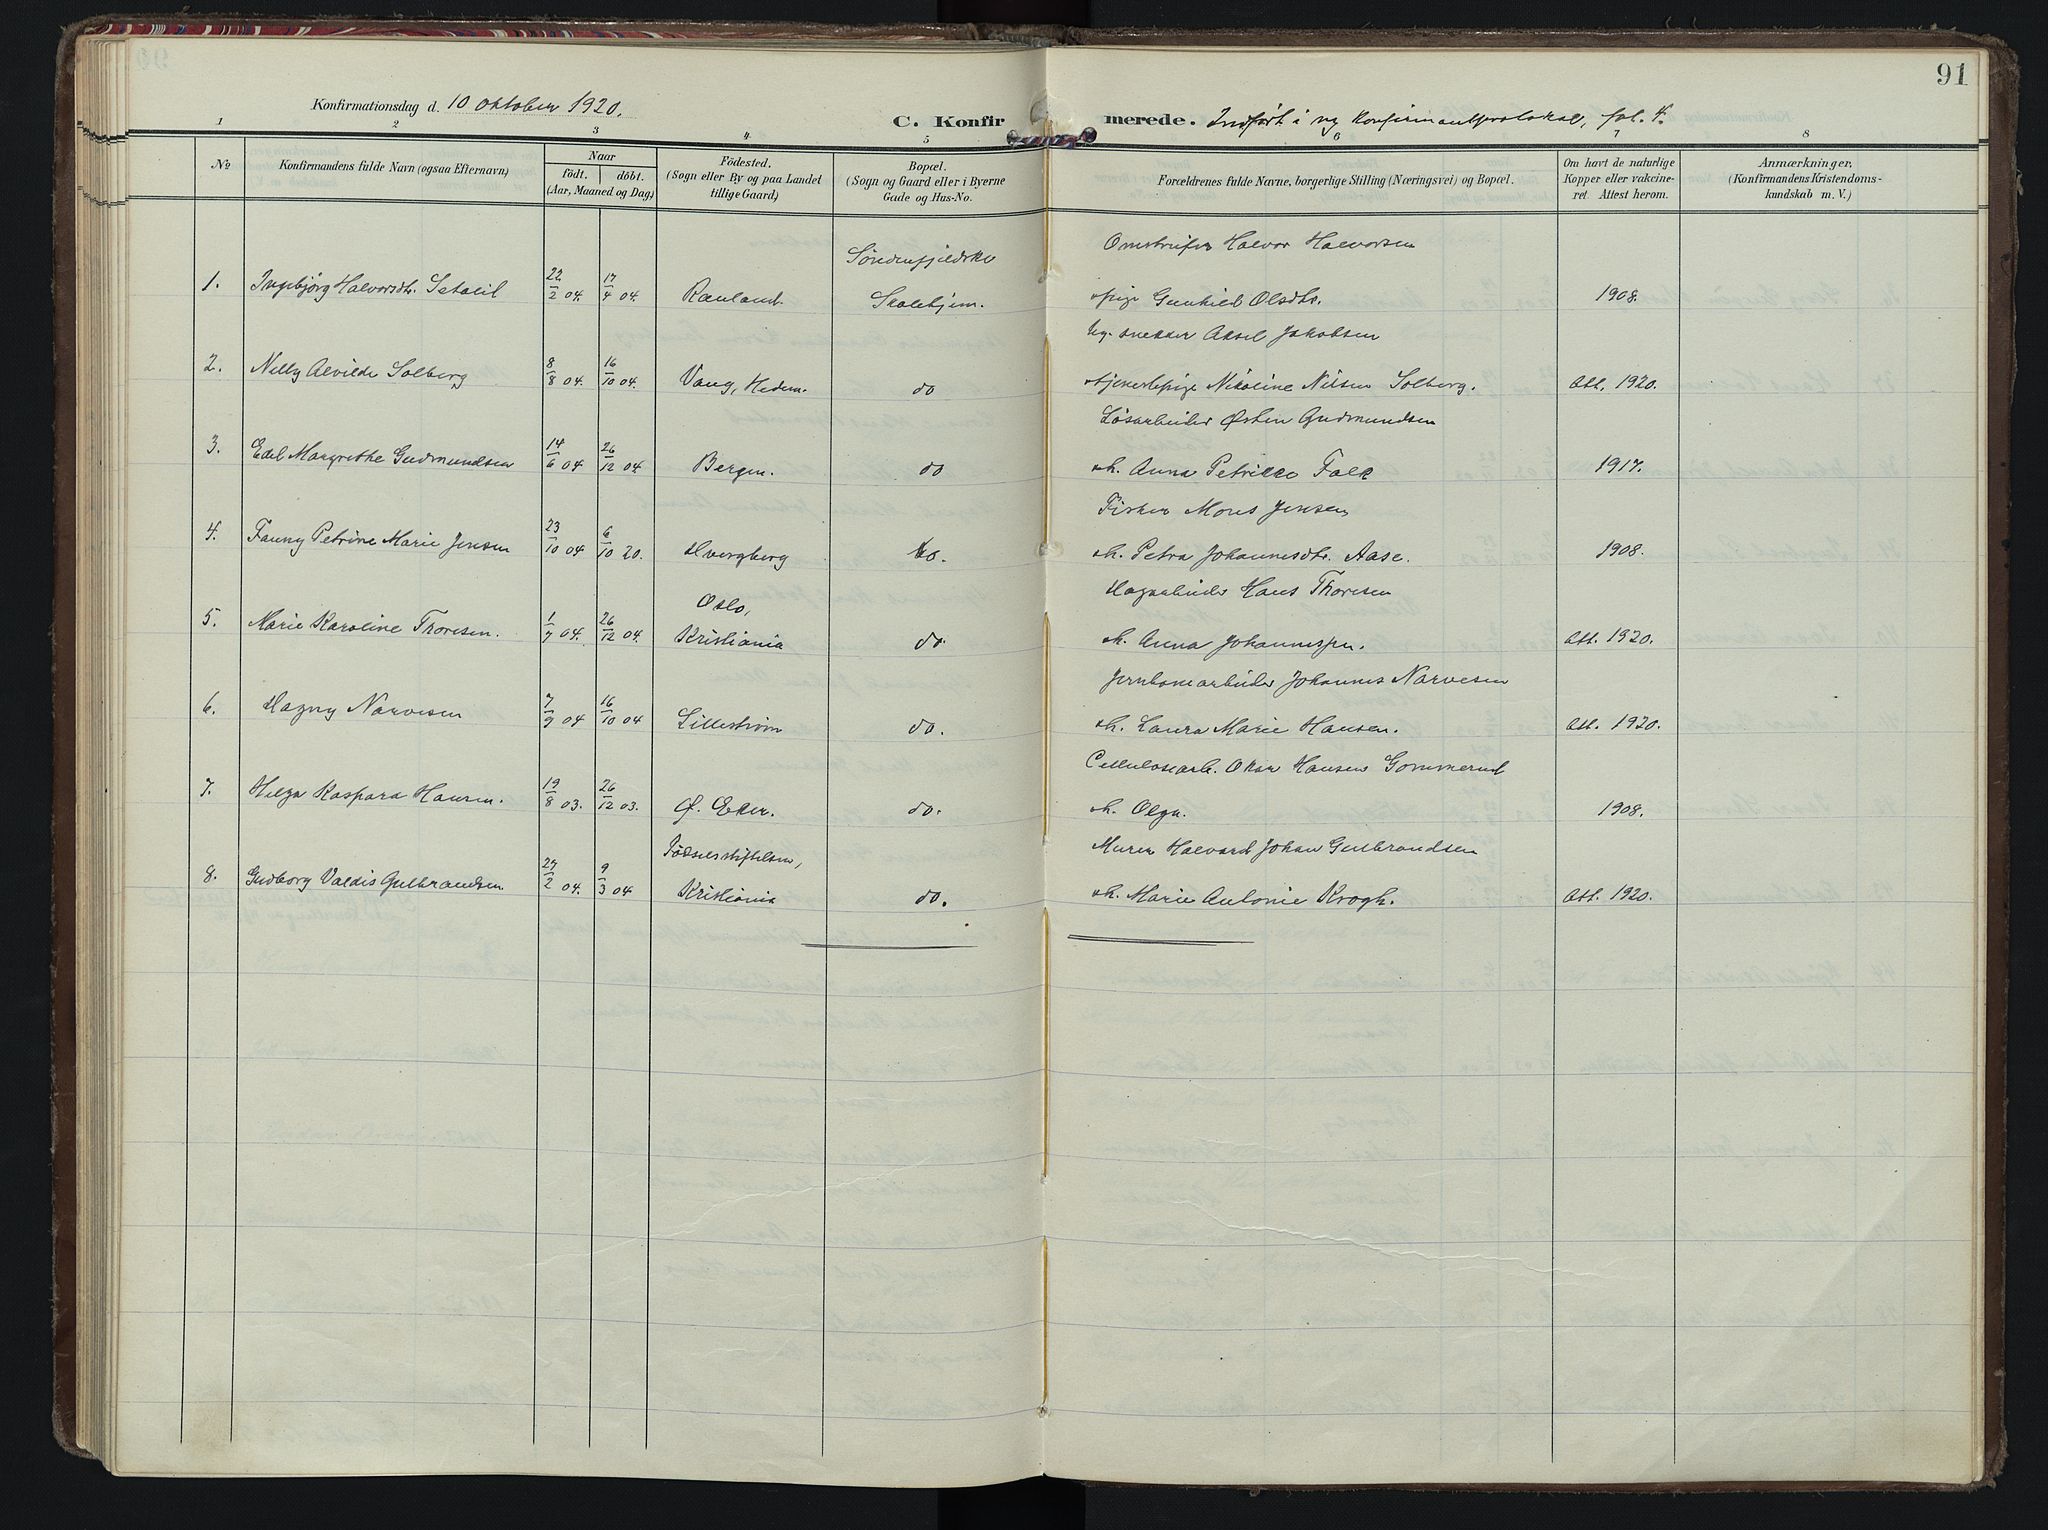 91
Konfirmationsdag d. 10 oktober 1920.
C. Konfirmerede. Indført i ny konfirmantprotokol, fol. 4.
1 2 3 4 5 6 7 8
No
Konfirmandens fulde Navn (ogsaa Efternavn)
Naar
födt. döbt.
(Aar, Maaned og Dag)
Födested.
(Sogn eller By og paa Landet
tillige Gaard)
Bopœl.
(Sogn og Gaard eller i Byerne
Gade og Hus-No.
Forœldrenes fulde Navne, borgerlige Stilling (Nœringsvei) og Bopœl.
Om havt de naturlige
Kopper eller vakcine-
ret. Attest herom.
Anmœrkninger,
(Konfirmandens Kristendoms-
kundskab m. V.)
Søndenfjeldske Halvor Halvorsen
1. Ingebjørg Halvorsdtr. 22/2 04. 17/4 04. Rauland. Skolehjem. pige Gunhild Olsdtr. 1908.
ug. snekker Aksel Jakobsen
2. Nelly Alvilde Solberg 8/8 04. 16/10 04. Vang, Hedem. do tjenestepige Nikoline Nilsen Solberg. Att. 1920.
Løsarbeider Østen Gudmundsen
3. Edel Margrethe Gudmundsen 14/6 04 26/12 04. Bergen. do h. Anna Petrikke Falk 1917.
Fisker Mons Jensen
4. Fanny Petrine Marie Jensen 23/10 04 6/10 20. do. h. Petra Johannesdtr. Aase. 1908.
Oslo, Hans Thoresen
5. Marie Karoline Thoresen. 1/7 04. 26/12 04. Kristiania do. h. Anna Att. 1920.
Jernbanearbeider Johannes Narvesen
6. Hagny Narvesen 7/9 04 16/10 04 Lillestrøm do. h. Laura Marie Hansen. Att. 1920.
Cellulosearb. Oskar Hansen Gommerud
7. Helga Kaspara Hansen. 19/8 03. 26/12 03. Ø. Eker. do. h. Olga. 1908.
Fødselsstiftelsen, Murer Halvard Johan Gulbrandsen
8. Gudborg Valdis Gulbrandsen 27/2 04. 9/3 04 Kristiania do. h. Marie Antonie Krogh. Att. 1920.